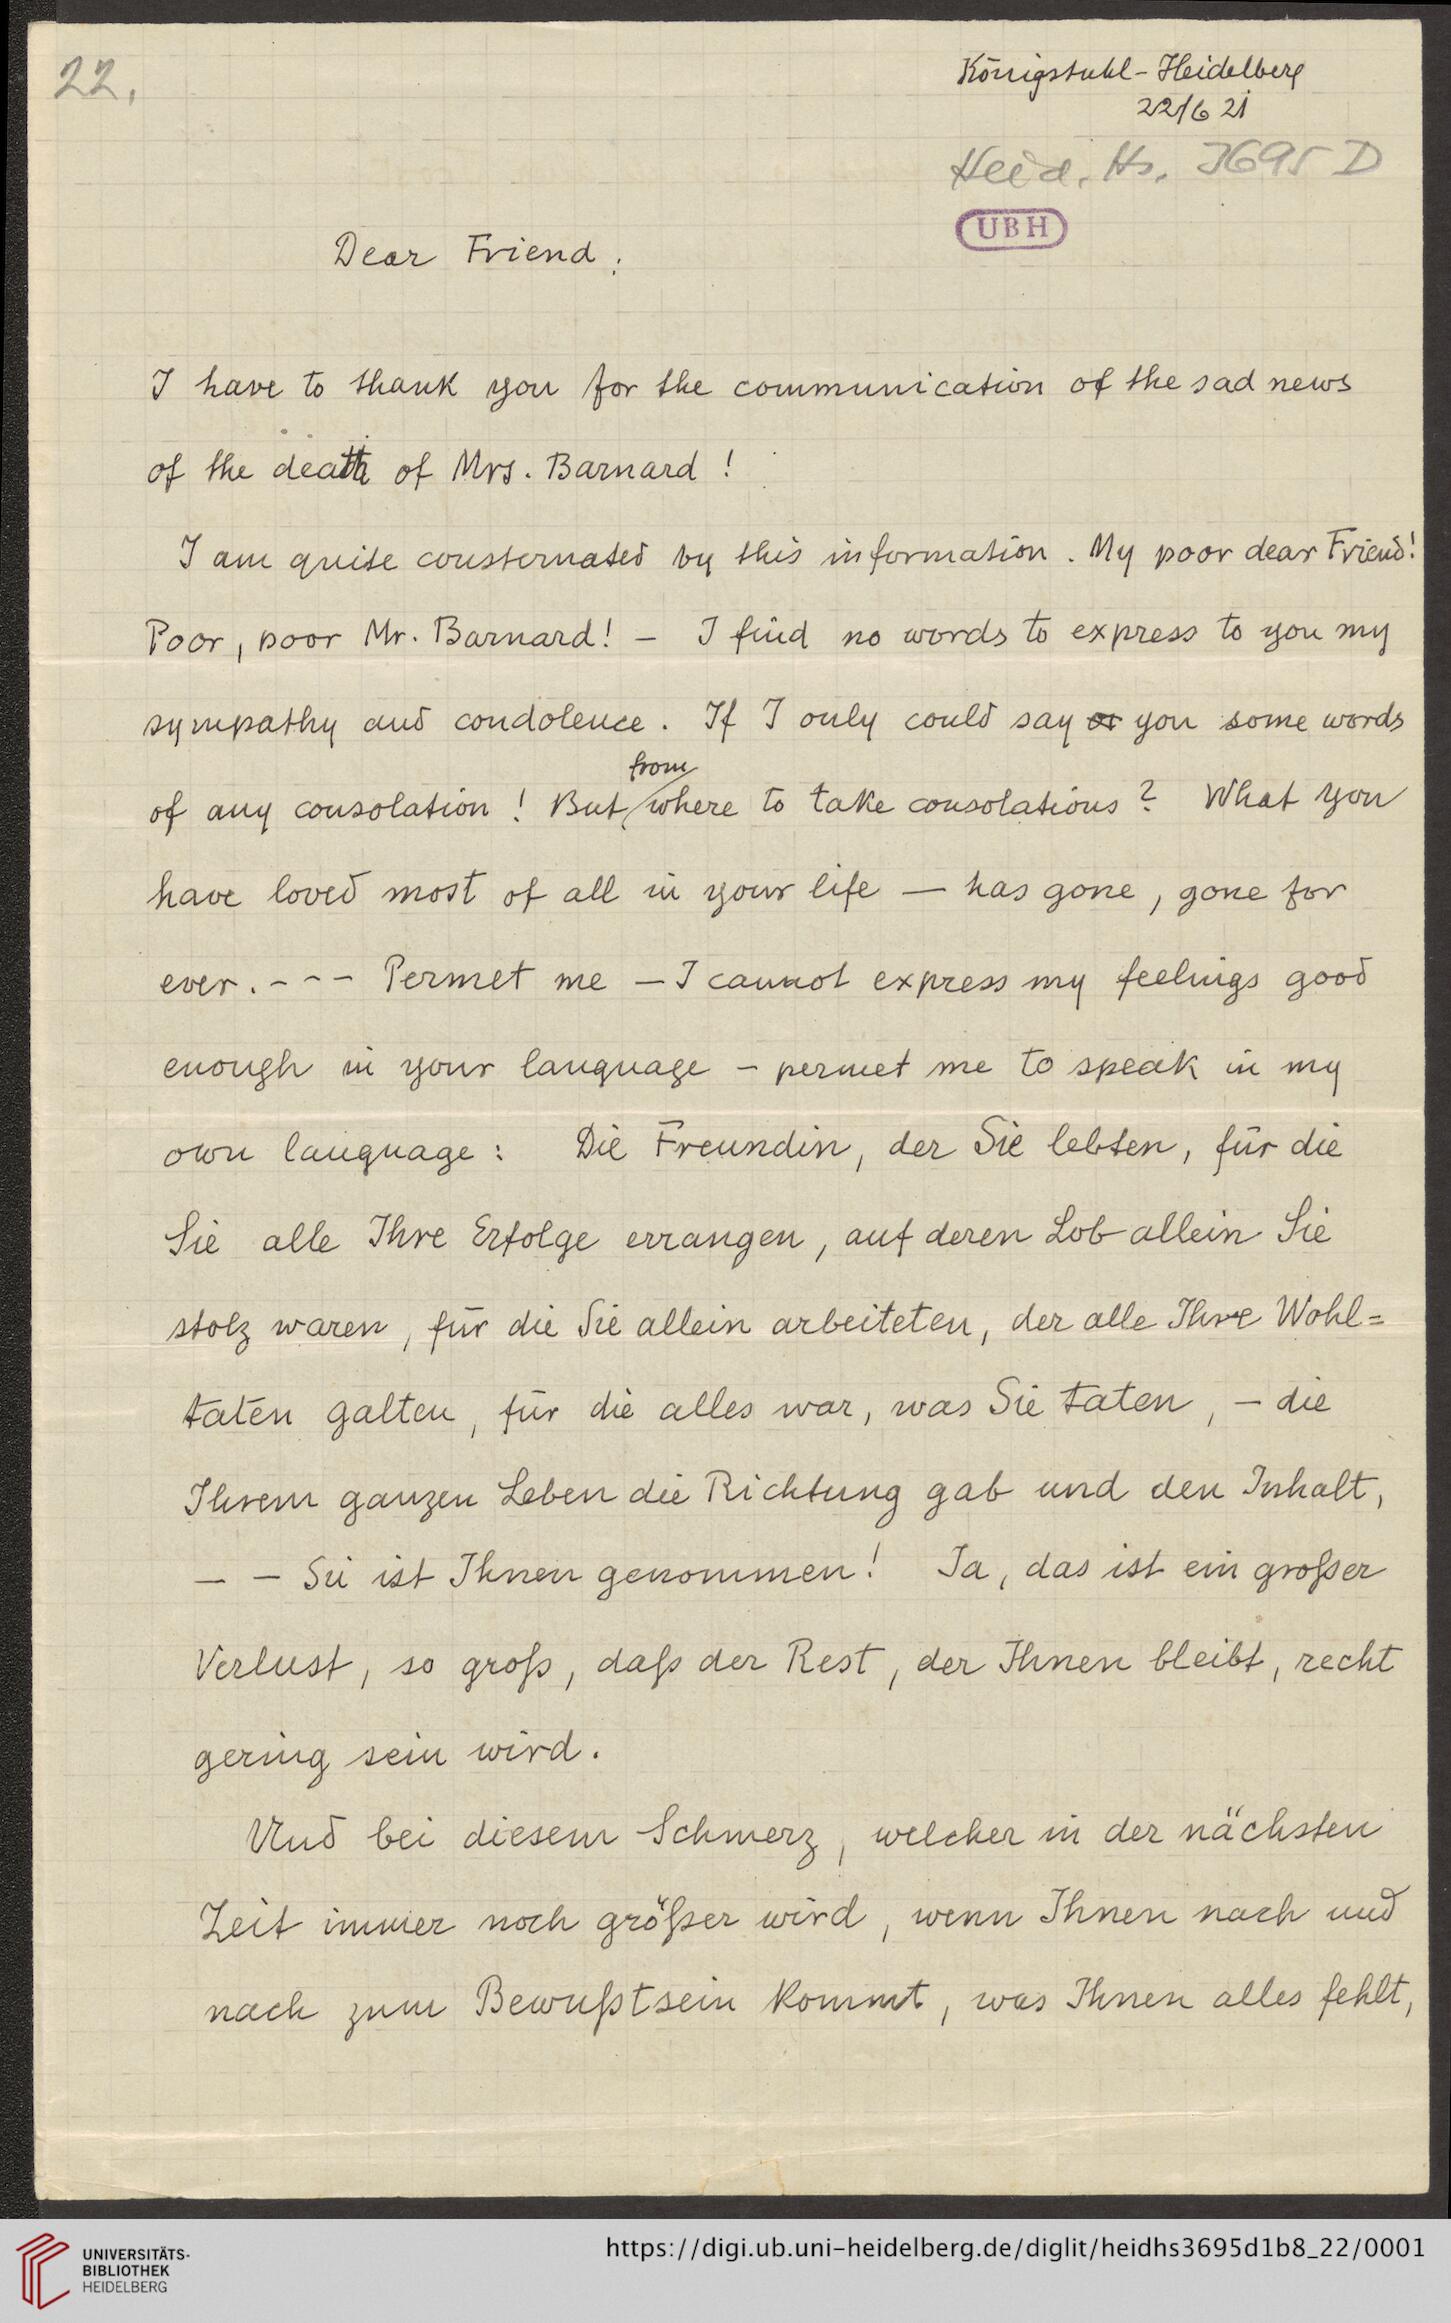 22.
Königstuhl-Heidelberg
22/6 21
Heid. Hs. 3695 D
UBH
Dear Friend.
I have to thank you for the communication of the sad news
of the death of Mrs. Barnard !
I am quite consternated by this information. My poor dear Friend!
Poor, poor Mr. Barnard! – I find no words to express to you my
sympathy and condolence. If I only could say or you some words
from
of any consolation ! But where to take consolations ? What you
have loved most of all in your life – has gone, gone for
ever. - - - Permet me – I cannot express my feelings good
enough in your language – permet me to speak in my
own language : Die Freundin, der Sie lebten, für die
Sie alle Ihre Erfolge errangen, auf deren Lob allein Sie
stolz waren, für die Sie allein arbeiteten, der alle Ihre Wohl=
taten galten, für die alles war, was Sie taten, – die
Ihrem ganzen Leben die Richtung gab und den Inhalt,
– – Sie ist Ihnen genommen! Ja, das ist ein großer
Verlust, so groß, daß der Rest, der Ihnen bleibt, recht
gering sein wird.
Und bei diesem Schmerz, welcher in der nächsten
Zeit immer noch größer wird, wenn Ihnen nach und
nach zum Bewußtsein kommt, was Ihnen alles fehlt,
UNIVERSITÄTS-
BIBLIOTHEK
HEIDELBERG
https://digi.ub.uni-heidelberg.de/diglit/heidhs3695d1b8_22/0001